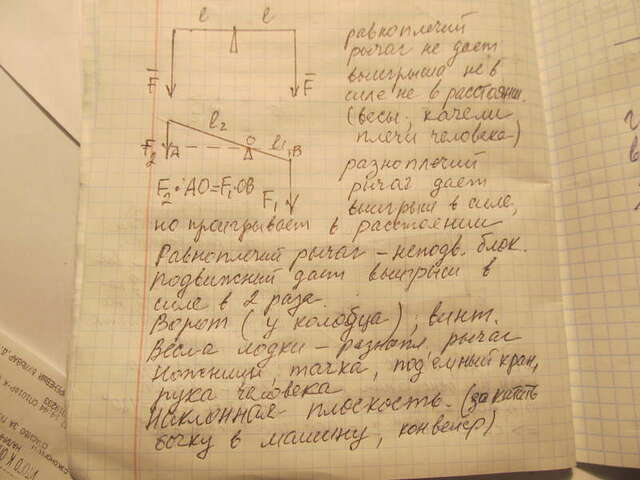 l l
равноплечий
рычаг не дает
выигрыша не в
силе не в расстоянии.
(весы, качели,
плечи человека)
F F
l₂
F₂ A O l₁ B
F₂·AO=F₁·OB F₁
разноплечий
рычаг дает
выигрыш в силе,
но проигрывает в расстоянии
Равноплечий рычаг – неподв. блок.
Подвижний дает выигрыш в
силе в 2 раза.
Ворот (у колобца), винт.
Весла лодки – разнопл. рычаг
Ножницы, тачка, под'емный кран,
рука человека
Наклонная плоскость. (закатать
бочку в машину, конвейер)